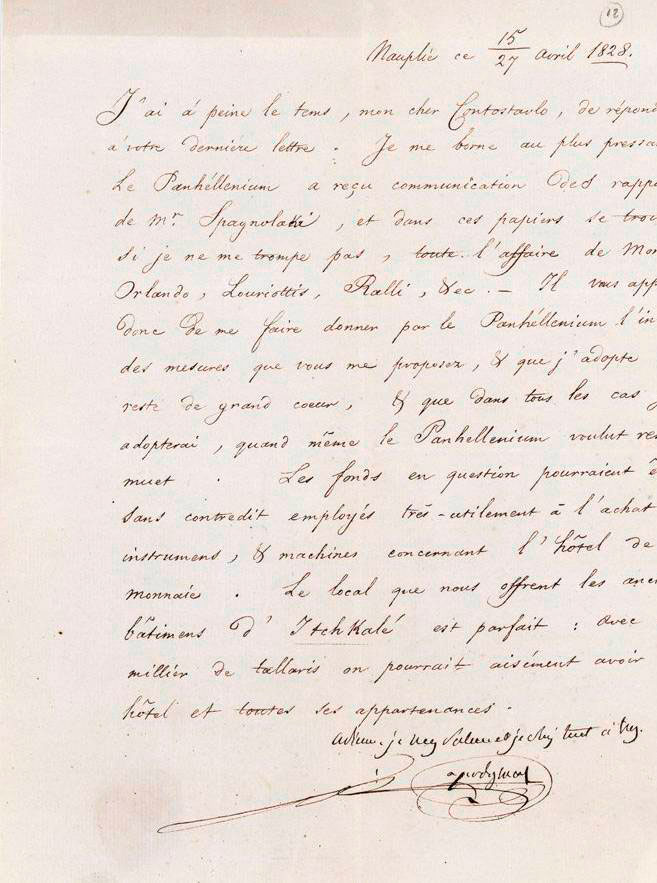 12
Nauplie ce 15/27 avril 1828.
J'ai á peine le tems, mon cher Contostavlo, de répond
á votre derniére lettre. Je me borne au plus pressa
Le Panhéllenium a reçu communication des rappo
de Mr. Spagnolaki, et dans ces papiers se trou
si je ne me trompe pas, toute l'affaire de
Orlando, Louriottis, Ralli, &ec. — Il vous app
donc de me faire donner par le Panhéllenium l'in
des mesures que vous me proposez, & que j'adopte
reste de grand coeur, & que dans tous les cas j
adopterai, quand même le Panhellenium voulut res
muet. Les fonds en question pourraient ê
sans contredit employés trés-utilement á l'achat
instrumens, & machines concernant l'hôtel de
monnaie. Le local que nous offrent les anc
bâtimens d'Itchkalé est parfait : avec
millier de tallaris on pourrait aisément avoir
hôtel et toutes ses appartenances.
tout à